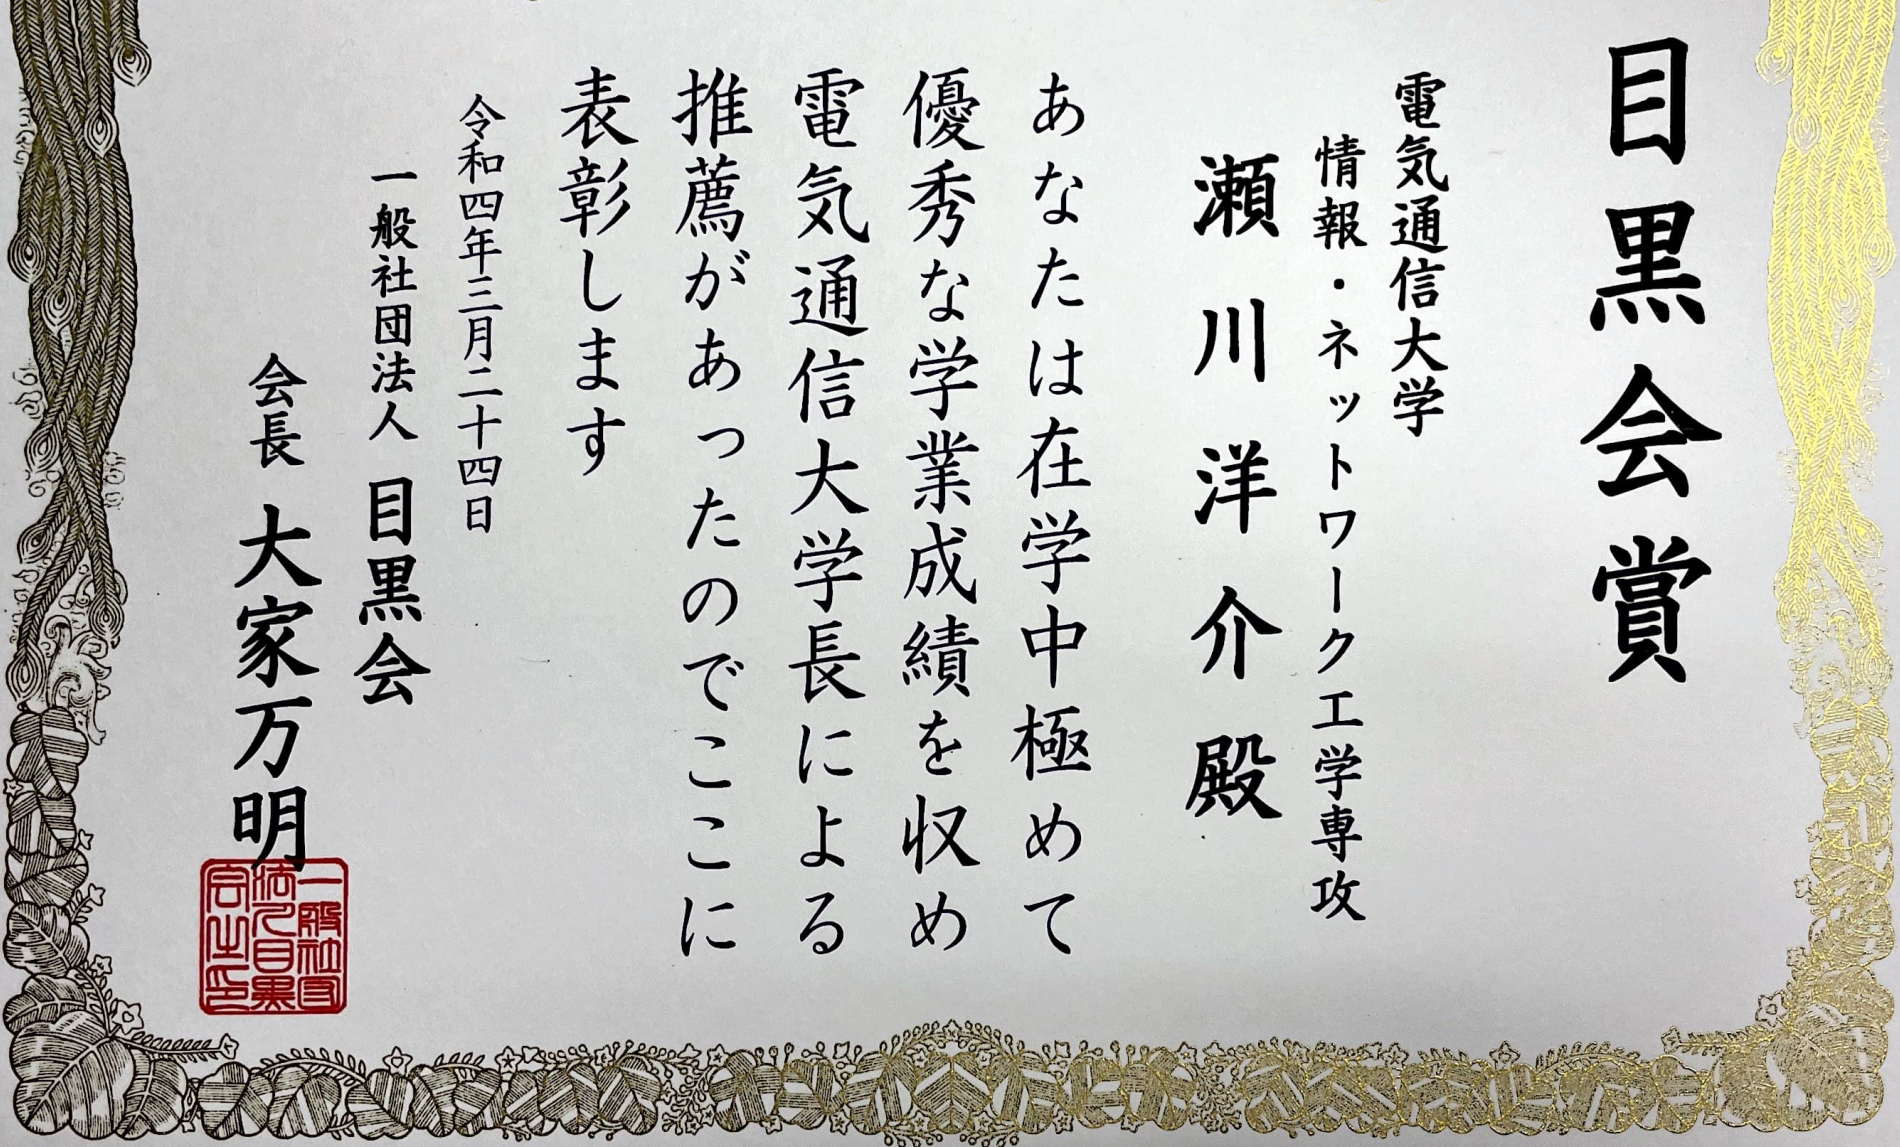 目黒会賞
電気通信大学
情報・ネットワーク工学専攻
瀬川洋介殿
あなたは在学中極めて
優秀な学業成績を収め
電気通信大学長による
推薦があったのでここに
表彰します
令和四年三月二十四日
一般社団法人 目黒会
会長 大家万明
一般社団
法人目黒
会之印